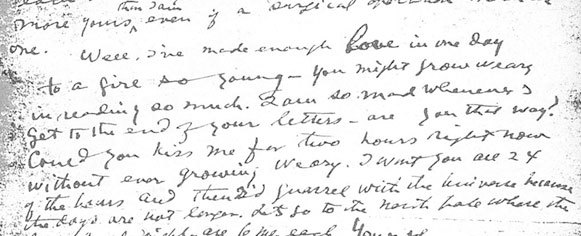 than I am
more yours, even if a surgical
one. Well, I've made enough love in one day
to a girl so young - you might grow weary
in reading so much. I am so mad whenever I
get to the end of your letters - are you that way?
Could you kiss me for two hours right now
without ever growing weary. I want you all 24
of the hours and then I'd quarrel with the universe because
the days are not longer. Let's go to the north pole where the
are